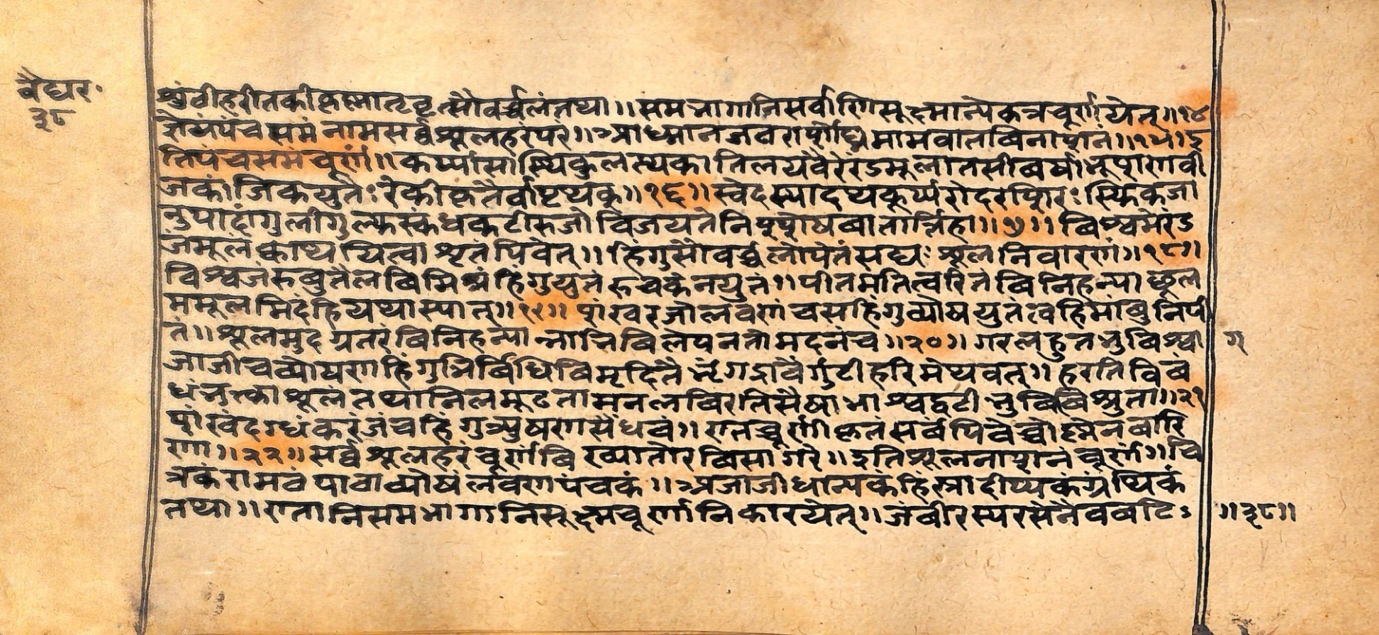 वैद्यर॰
३८
श्रुंठीहरीतकीकृष्मातृवृत्सौवर्च्चलंतथा॥समभागानिसर्वाणिसूक्ष्मान्येकत्रचूर्णयेत्॥१४
ज्ञेयंपंचसमंनामसर्वश्रूलहरंपरं॥आध्मानजठरार्शोघ्नमामवातविनाशनं॥१५॥इ
तिपंचसमंचूर्णं॥कर्प्पासास्थिकुलत्थकातिलयवैरेरंडमूलातसीवर्षाभूशणवी
जकांजिकयुतैःरेकीकृतैर्वापृथक्॥१६॥स्वेदस्यादथकूर्प्परोदरशिरःस्फिक्जा
नुपादांगुलीगुल्फस्कंधकटीरुजोविजयतेनिश्शेषवातार्त्तिहा॥७॥विश्वमेरंड
जमूलंक्वाथयित्वाश्रृतंपिवेत्॥हिंगुसौवर्च्चलोपेतंसद्यःश्रूलनिवारणं॥१८॥
विश्वजरुबुतैलविमिश्रंहिंगुयुतंरुचकेनयुतं॥पीतमतित्वरितंविनिहन्याच्छूल
ममूलमिदंहियथास्यात्॥१९॥शंखरजोलवणंचसहिंगुव्योषयुतंत्वहिमांबुनिपी
तं॥श्रूलमुदग्रतरंविनिहन्यान्नाभिविलेपनतोमदनंच॥२०॥गरलहुतभुविश्वा
ण
जाजीचव्योषणहिंगुभिर्विधिविमृदितैर्भृंगद्रावैर्गुटीहरिमंथवत्॥हरतिविवं
धंभुक्ताश्रूलंतथानिलमूढतामनलविरतिंसैषाभाश्वद्वटीभुविविश्रुता॥२१
शंखंदग्धकरंजंचहिंगुत्र्युषणसैंधवं॥एतच्चूर्णीकृतंसर्वंपिवेच्चोष्मेनवारि
णा॥२२॥सर्वश्रूलहरंचूर्णंविख्यातोरविसागरे॥इतिश्रूलनाशनंचूर्णं॥चि
त्रकंरामठंपाठाव्योषंलवणपंचकं॥अजाजीधान्यकंहिंस्रादीप्यकंग्रंथिकं
तथा॥एतानिसमभागानिसूक्ष्मचूर्णानिकारयेत्॥जंबीरस्यरसेनैववटि
॥३८॥